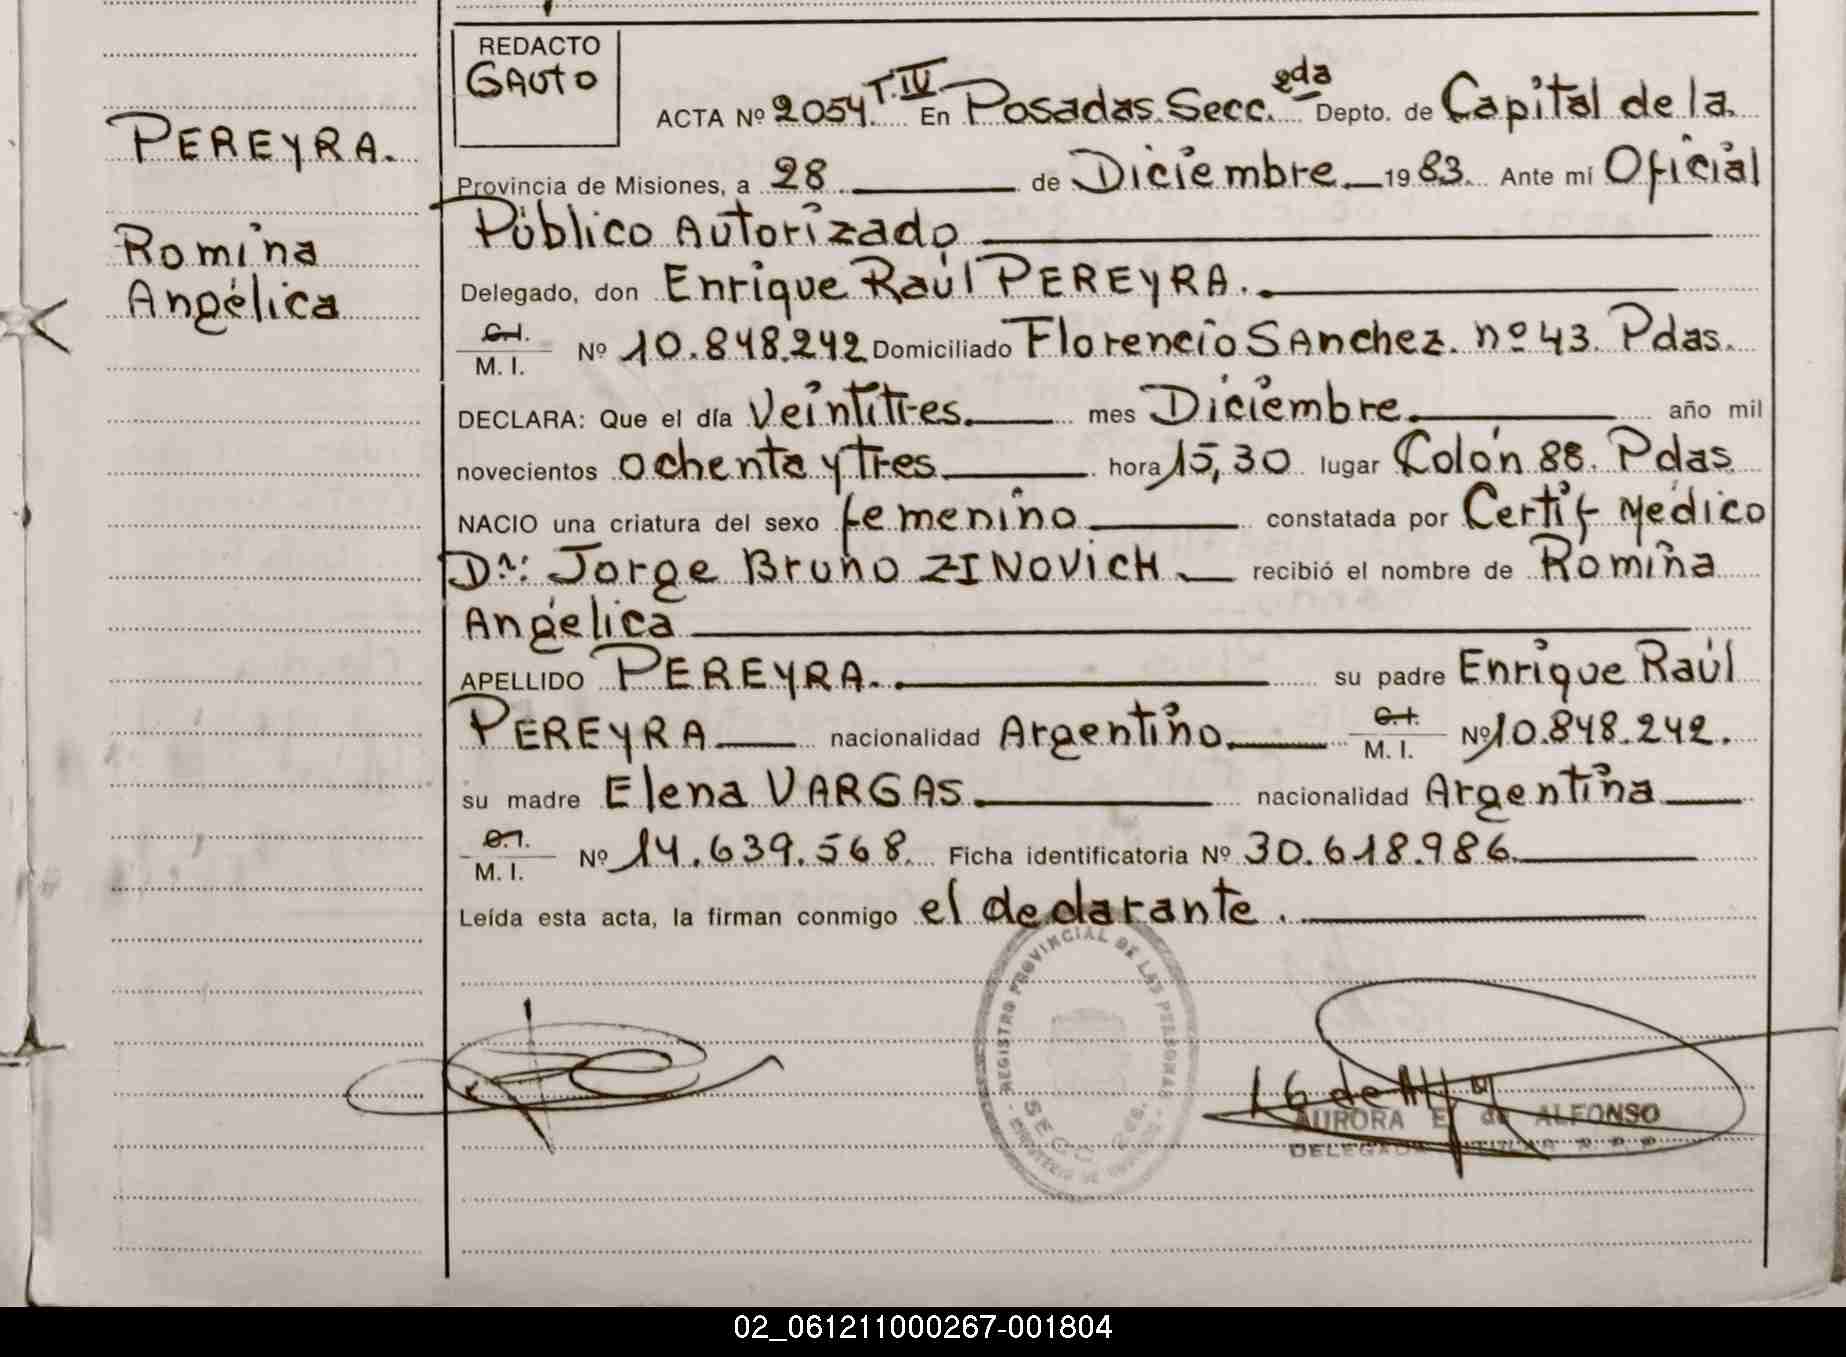 REDACTO
GAUTO
PEREYRA.
Romina
Angélica
ACTA Nº 2054 T.IV En Posadas Secc. 2da Depto. de Capital de la
Provincia de Misiones, a 28 de Diciembre 1983. Ante mí Oficial
Público Autorizado
Delegado, don Enrique Raúl PEREYRA.
C.I.
M. I. Nº 10.848.242 Domiciliado Florencio SAnchez. nº 43. Pdas.
DECLARA: Que el día Veintitres. mes Diciembre año mil
novecientos ochenta y tres hora 15,30 lugar Colón 88. Pdas
NACIO una criatura del sexo femenino constatada por Certif Médico
Dr: Jorge Bruno ZINOVICH recibió el nombre de Romina
Angélica
APELLIDO PEREYRA. su padre Enrique Raúl
PEREYRA nacionalidad Argentino.
C.I.
M. I. Nº 10.848.242.
su madre Elena VARGAS. nacionalidad Argentina
C.I.
M. I. Nº 14.639.568. Ficha identificatoria Nº 30.618.986.
Leída esta acta, la firman conmigo el declarante.
REGISTRO PROVINCIAL DE LAS PERSONAS
SECC.
AURORA E. de ALFONSO
DELEGADA TITULAR R. P. P.
02_061211000267-001804